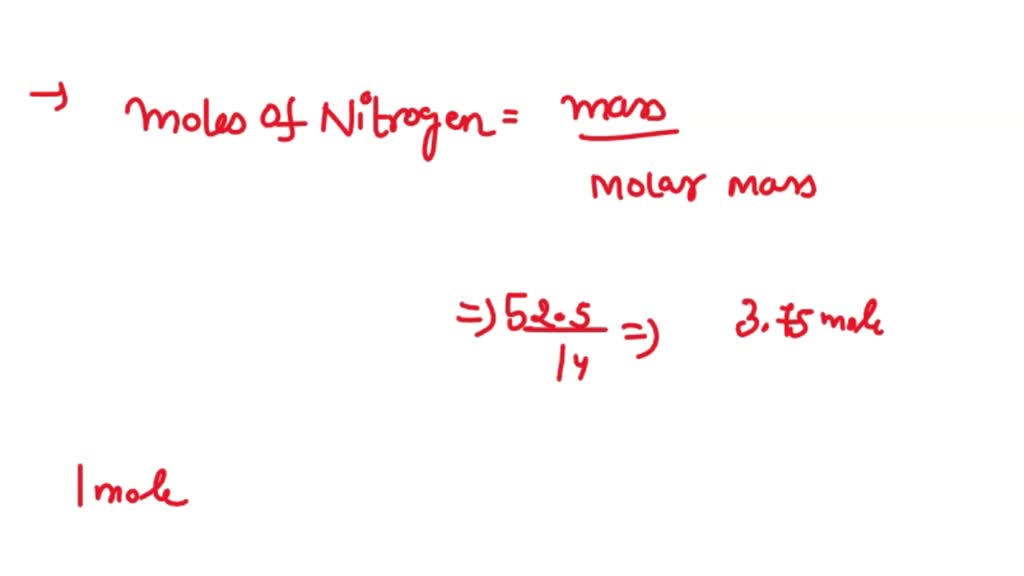 → Moles of Nitrogen = mass
molar mass
=) 52.5
14 =) 3.75 mole
1 mole